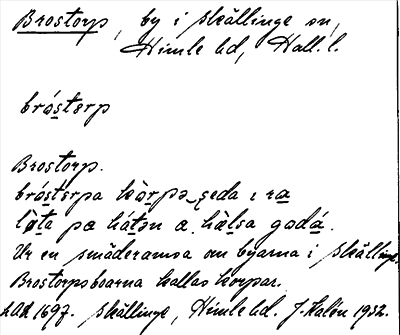 Brostorp, by i Skällinge sn,
Himle hd, Hall. l.
bróstɛrp
Brostorp.
bróstɛrpa kòrpə ɩ ra
lǫta pa hátən a hàlsa godá.
Ur en smäderamsa om byarna i Skällinge.
Brostorpsboarna kallas korpar.
LAL 1697. Skällinge, Himle hd. J. Kalén 1932.